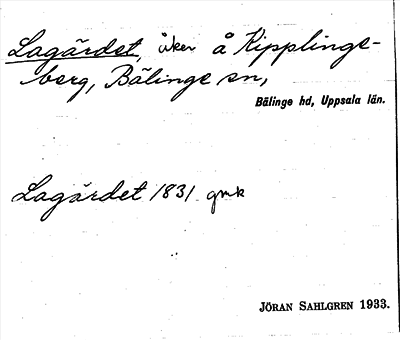 Lagärdet, åker å Kipplinge-
berg, Bälinge sn,
Bälinge hd, Uppsala län.
Lagärdet 1831 gmk
JÖRAN SAHLGREN 1933.